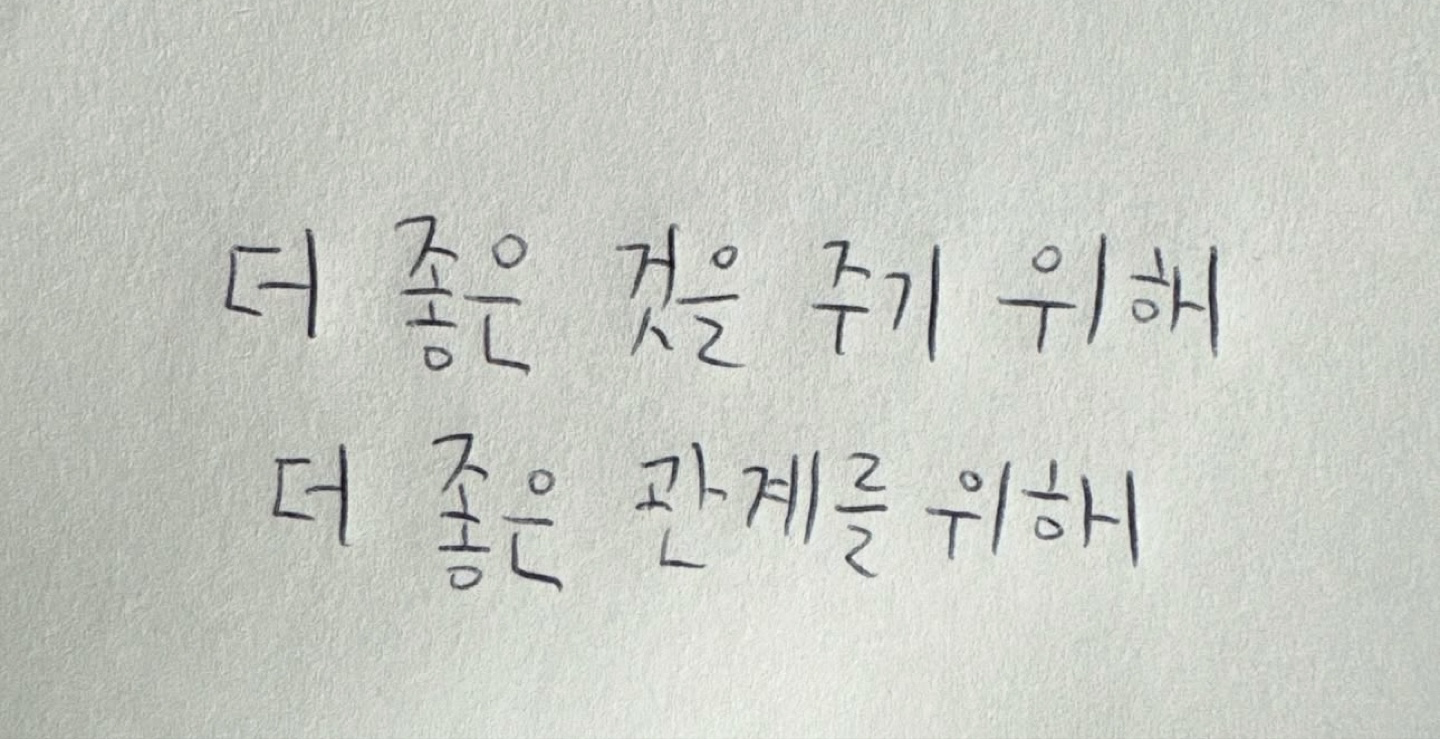 더 좋은 것을 주기 위해
더 좋은 관계를 위해